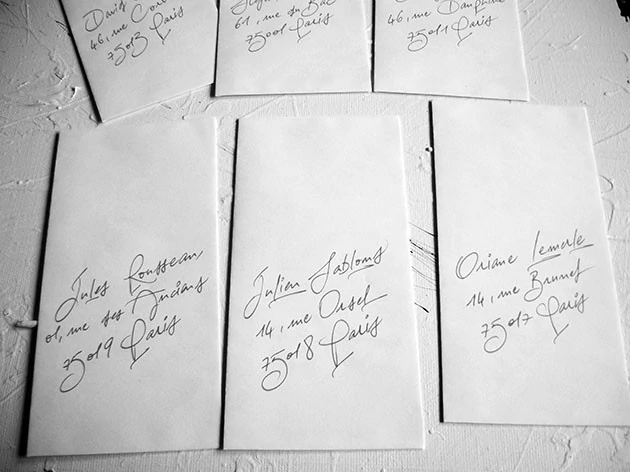 David
46, rue
75013 Paris
61, rue du Bac
75001 Paris
46, rue Dauphine
75011 Paris
Jules Rousseau,
01, rue des Anciens
75019 Paris
Julien Sablons
14, rue Orsel
75018 Paris
Oriane Lemerle
14, rue Brunel
75017 Paris